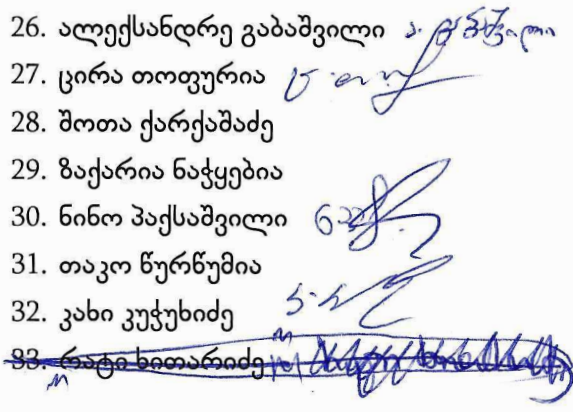 26. ალექსანდრე გაბაშვილი ა. გაბაშვილი
27. ცირა თოფურია
28. შოთა ქარქაშაძე
29. ზაქარია ნაჭყებია
30. ნინო პაქსაშვილი
31. თაკო წურწუმია
32. კახი კუჭუხიძე
33. რატი ხითარიძე